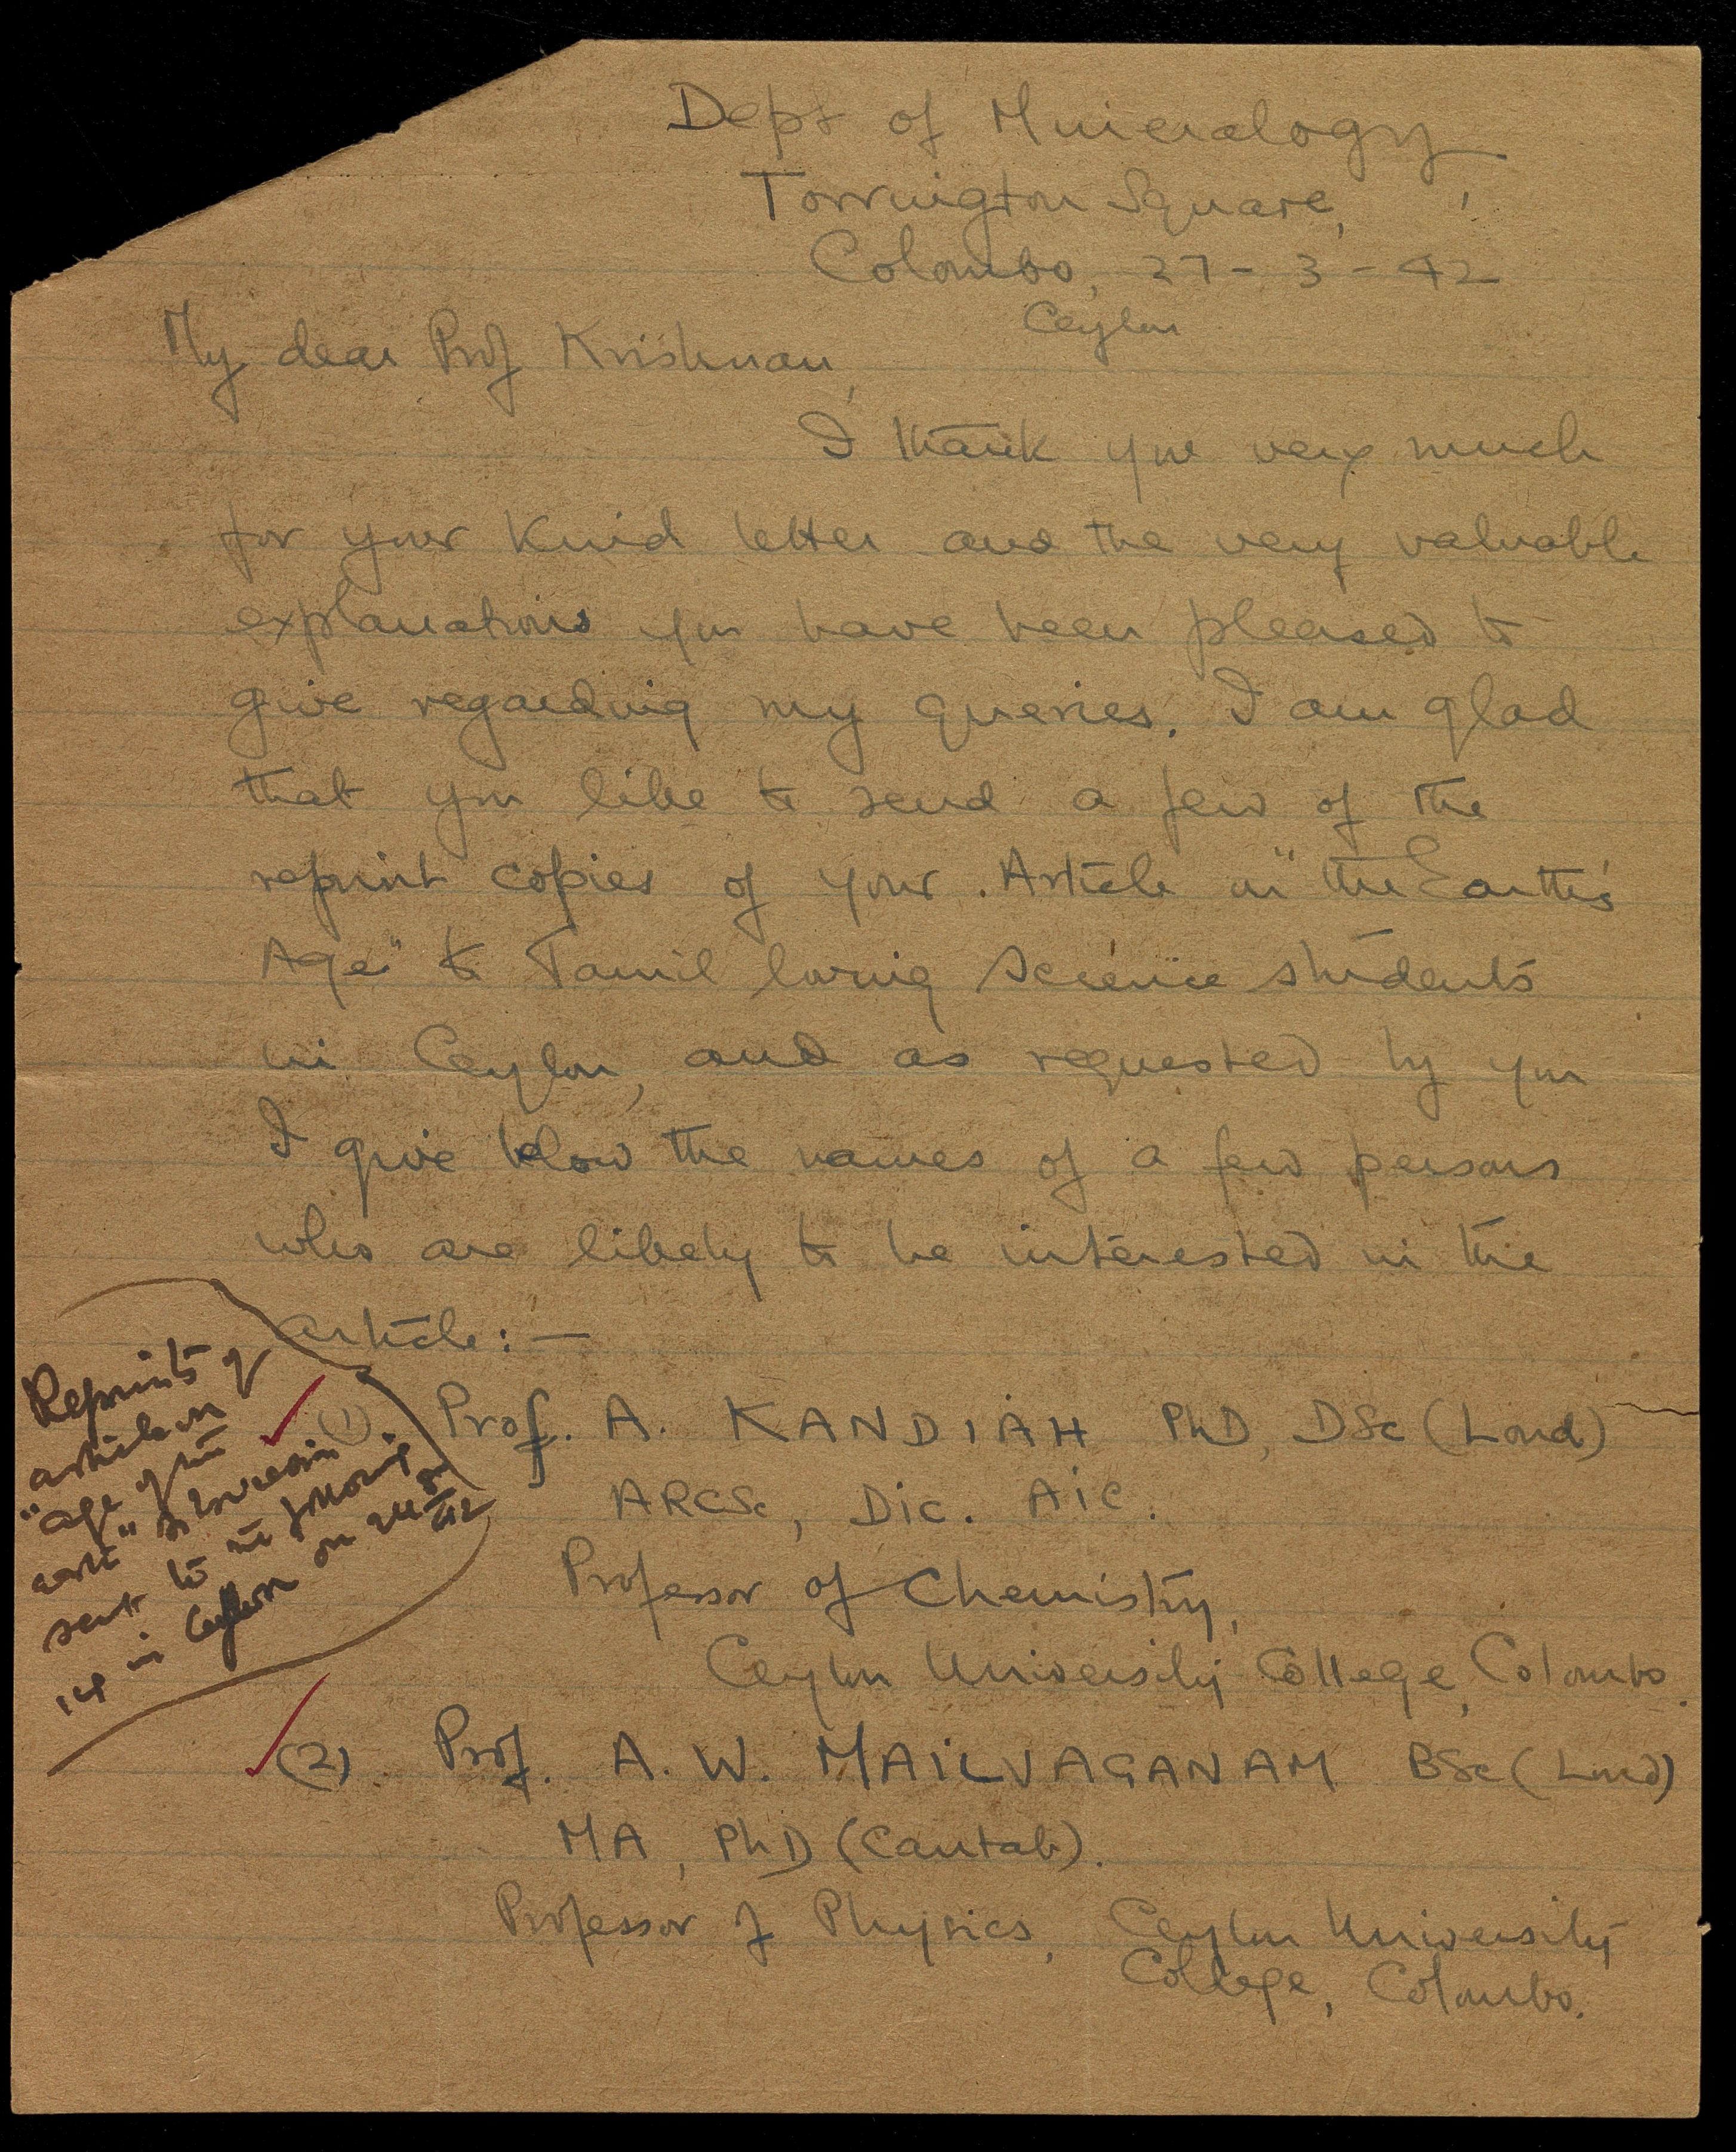 Dept of Mineralogy
Torrington Square,
Colombo, 27-3-42
Ceylon
My dear Prof Krishnan,
I thank you very much
for your kind letter and the very valuable
explanations you have been pleased to
give regarding my queries. I am glad
that you like to send a few of the
reprint copies of your Article in "the Earth's
Age" to Tamil loving science students
in Ceylon, and as requested by you
I give below the names of a few persons
who are likely to be interested in the
article:—
Reprints of
article on
"age of the
earth"
sent to the following
14 in Ceylon on
(1) Prof. A. KANDIAH PhD, DSc (Lond)
ARCSc, Dic. Aic.
Professor of Chemistry,
Ceylon University College, Colombo.
(2) Prof. A. W. MAILVAGANAM BSc (Lond)
MA, PhD (Cantab).
Professor of Physics, Ceylon University
College, Colombo.